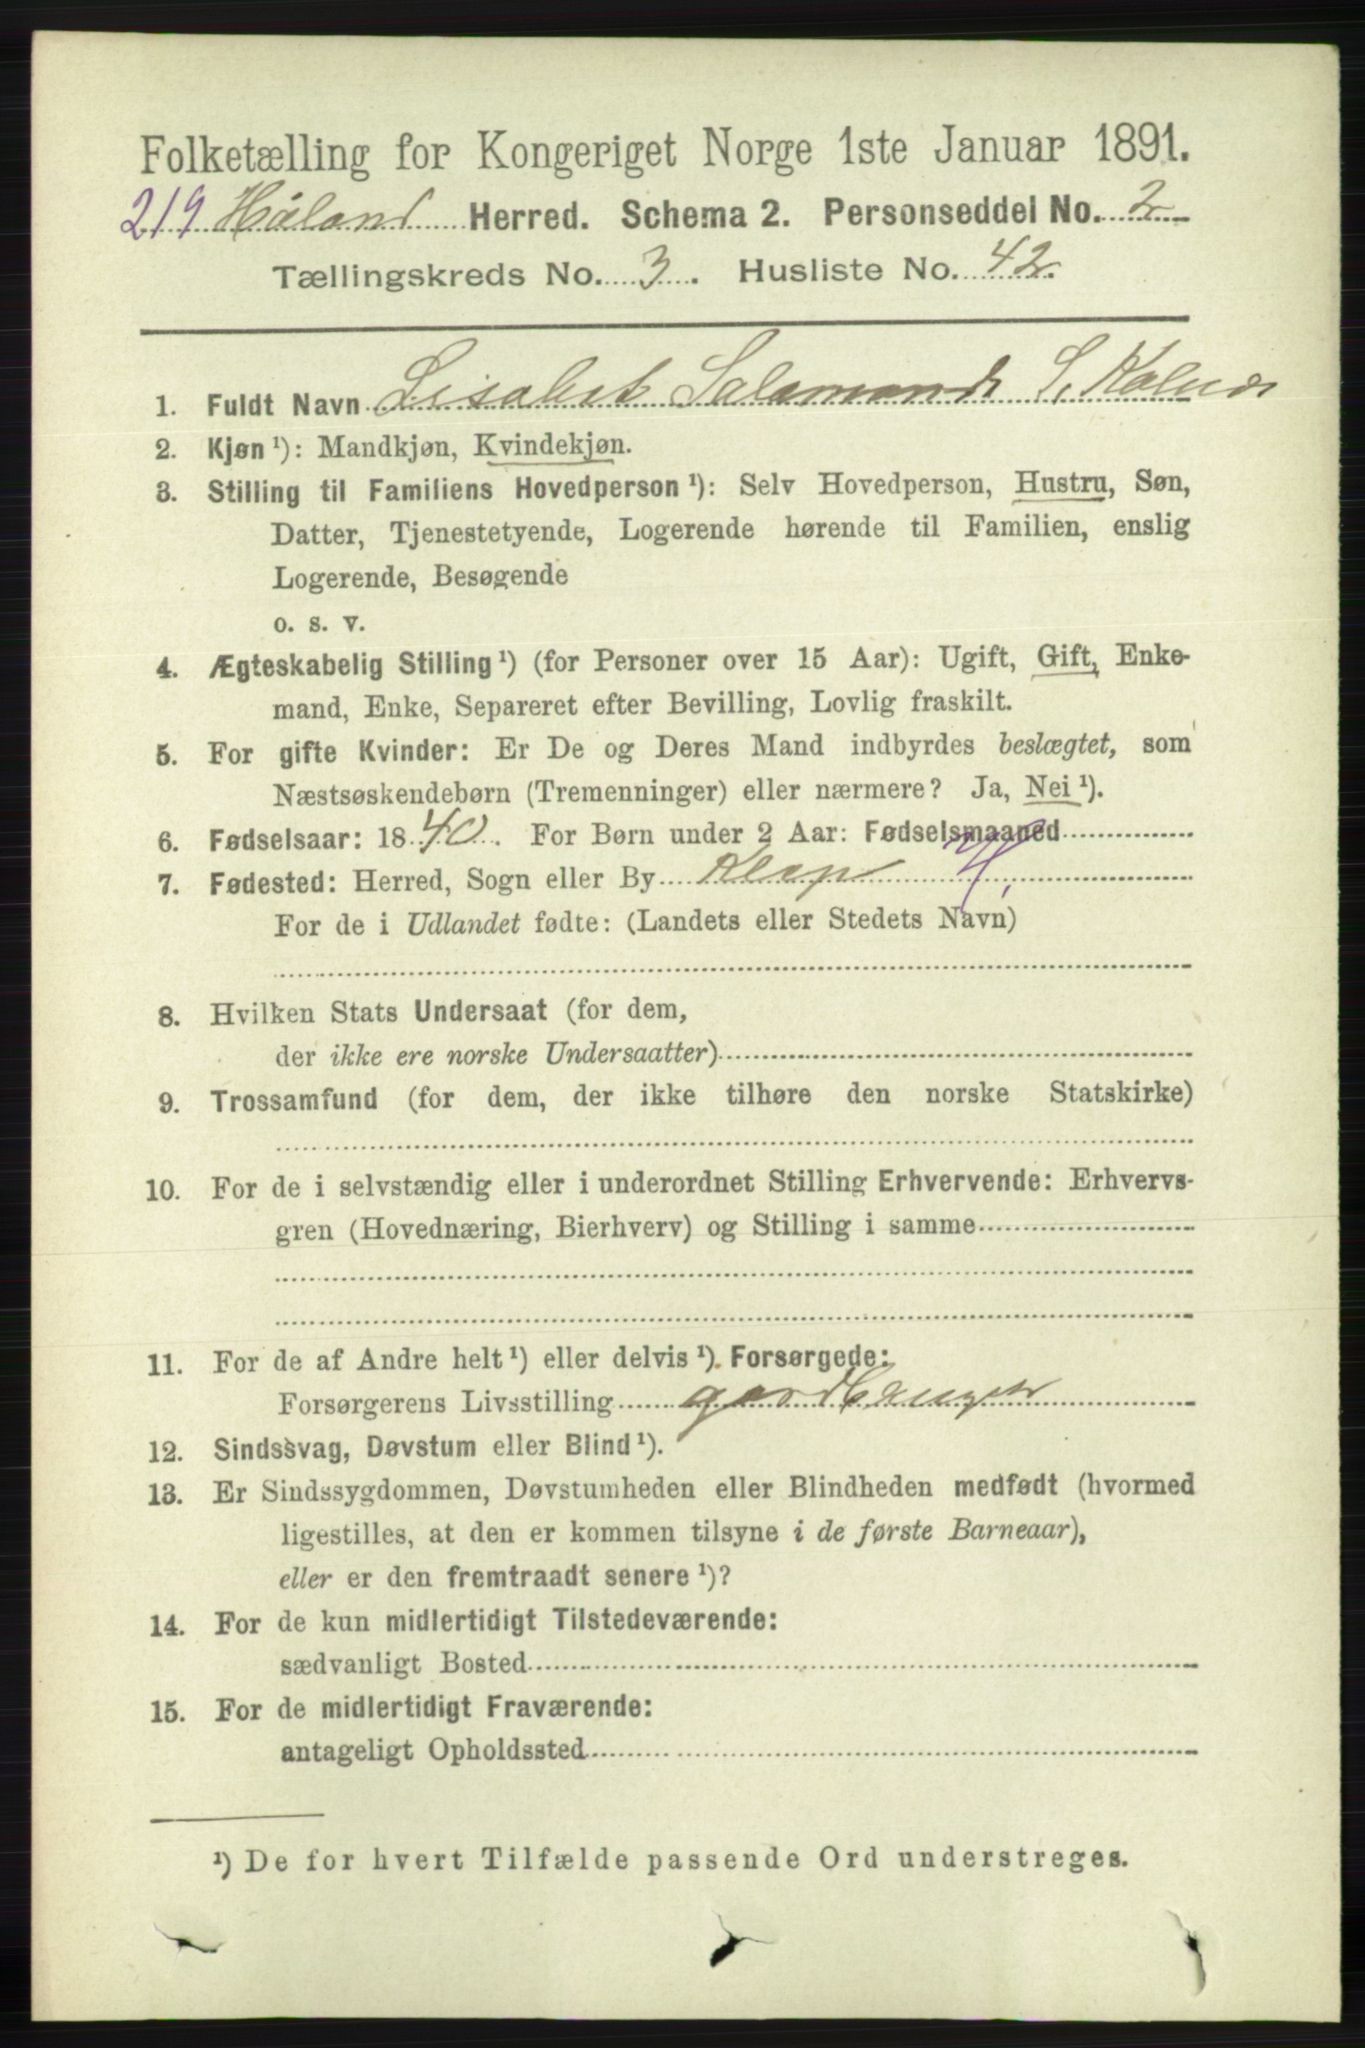 Folketælling for Kongeriget Norge 1ste Januar 1891.
219 Håland Herred. Schema 2. Personseddel No. 2
Tællingskreds No. 3. Husliste No. 42.
1. Fuldt Navn Lisabet Salamonds S.
2. Kjøn ¹): Mandkjøn, Kvindekjøn.
3. Stilling til Familiens Hovedperson ¹): Selv Hovedperson, Hustru, Søn,
Datter, Tjenestetyende, Logerende hørende til Familien, enslig
Logerende, Besøgende
o. s. v.
4. Ægteskabelig Stilling ¹) (for Personer over 15 Aar): Ugift, Gift, Enke-
mand, Enke, Separeret efter Bevilling, Lovlig fraskilt.
5. For gifte Kvinder: Er De og Deres Mand indbyrdes beslægtet, som
Næstsøskendebørn (Tremenninger) eller nærmere? Ja, Nei ¹).
6. Fødselsaar: 1840. For Børn under 2 Aar: Fødselsmaaned
7. Fødested: Herred, Sogn eller By Klep H.
For de i Udlandet fødte: (Landets eller Stedets Navn)
8. Hvilken Stats Undersaat (for dem,
der ikke ere norske Undersaatter)
9. Trossamfund (for dem, der ikke tilhøre den norske Statskirke)
10. For de i selvstændig eller i underordnet Stilling Erhvervende: Erhvervs-
gren (Hovednæring, Bierhverv) og Stilling i samme
11. For de af Andre helt ¹) eller delvis ¹). Forsørgede:
Forsørgerens Livsstilling gardbruger
12. Sindssvag, Døvstum eller Blind ¹).
13. Er Sindssygdommen, Døvstumheden eller Blindheden medfødt (hvormed
ligestilles, at den er kommen tilsyne i de første Barneaar),
eller er den fremtraadt senere ¹)?
14. For de kun midlertidigt Tilstedeværende:
sædvanligt Bosted
15. For de midlertidigt Fraværende:
antageligt Opholdssted
¹) De for hvert Tilfælde passende Ord understreges.